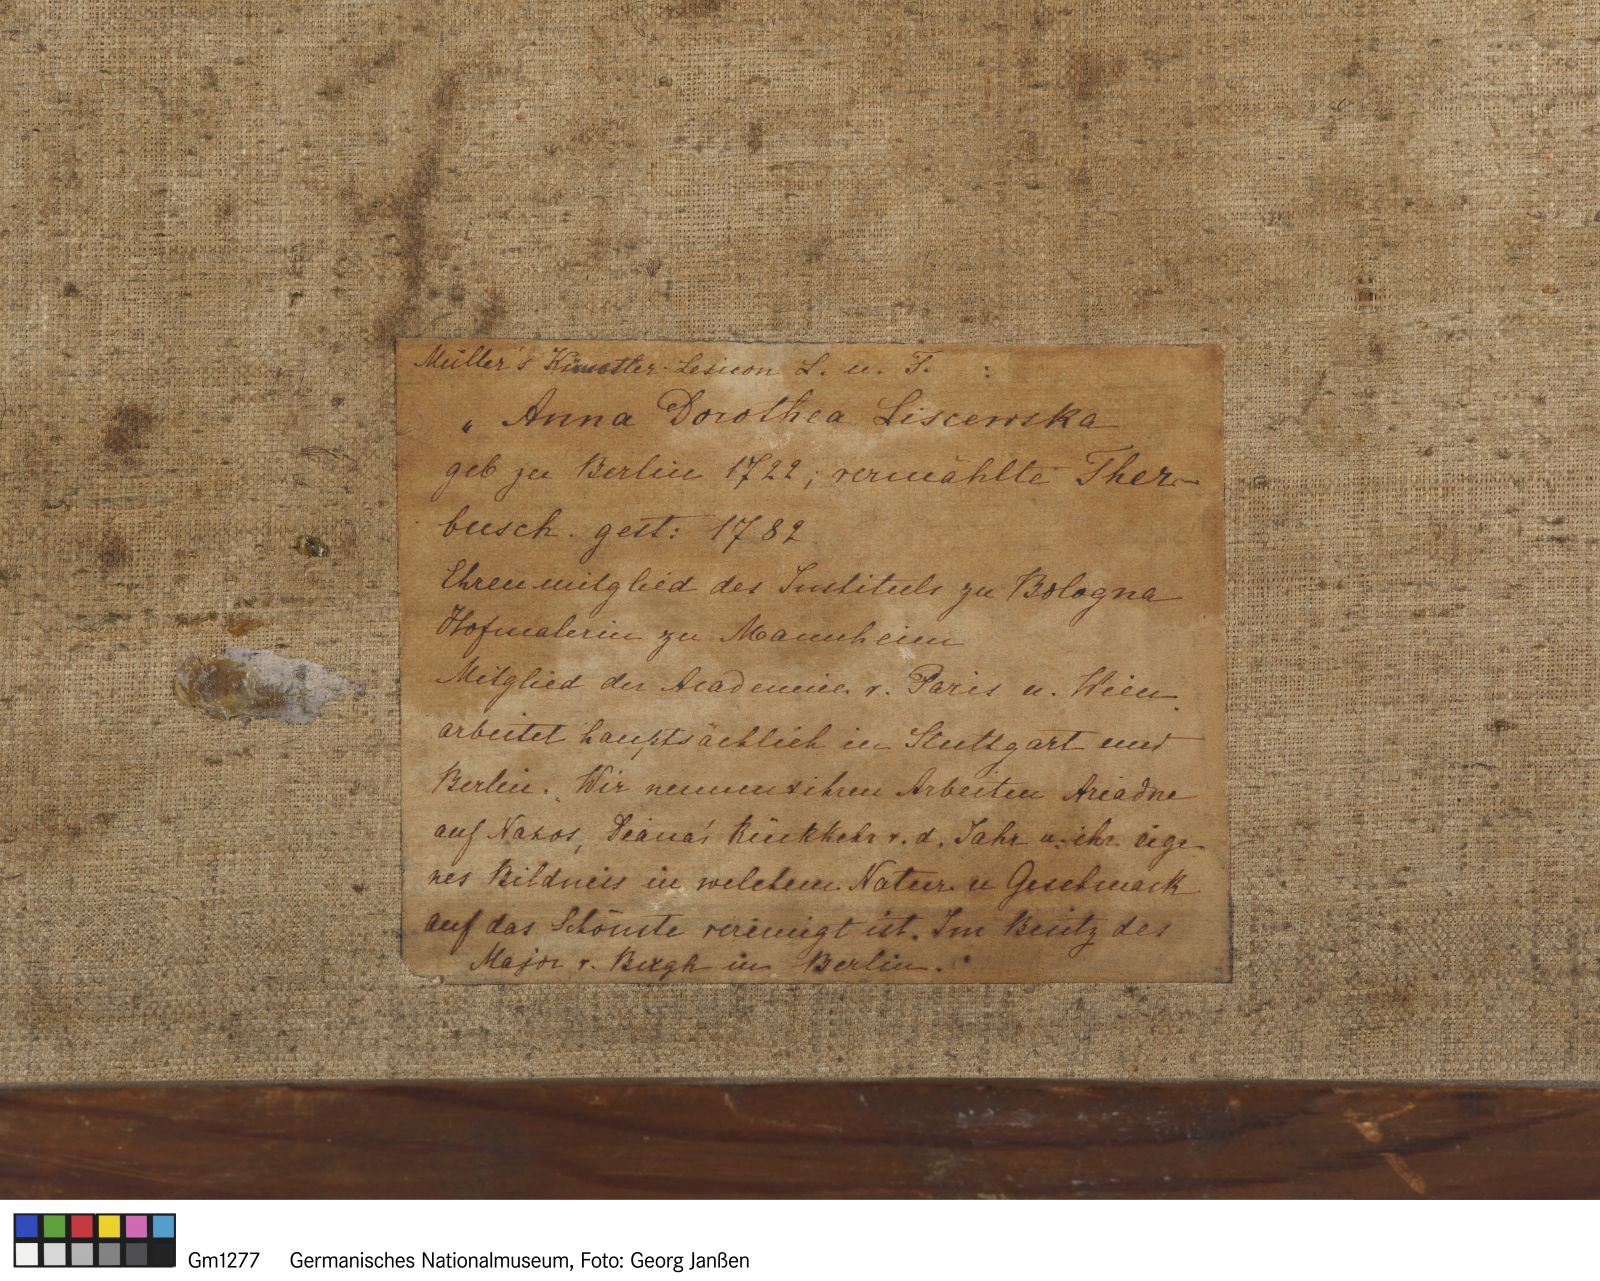 Müller's Künstler Lexicon L. u. F. :
„ Anna Dorothea Liscewska
geb zu Berlin 1722; vermählte Ther-
busch. gest: 1782
Ehrenmitglied des Instituts zu Bologna
Hofmalerin zu Mannheim
Mitglied der Academien v. Paris u. Wien.
arbeitet hauptsächlich in Stuttgart und
Berlin. Wir nennen ihren Arbeiten Ariadne
auf Naxos, Diana's Rückkehr v. d. Jahr u. ihr eige-
nes Bildniss in welchem Natur u Geschmack
auf das Schönste vereinigt ist. Im Besitz des
Major v. in Berlin.
Gm1277 Germanisches Nationalmuseum, Foto: Georg Janßen